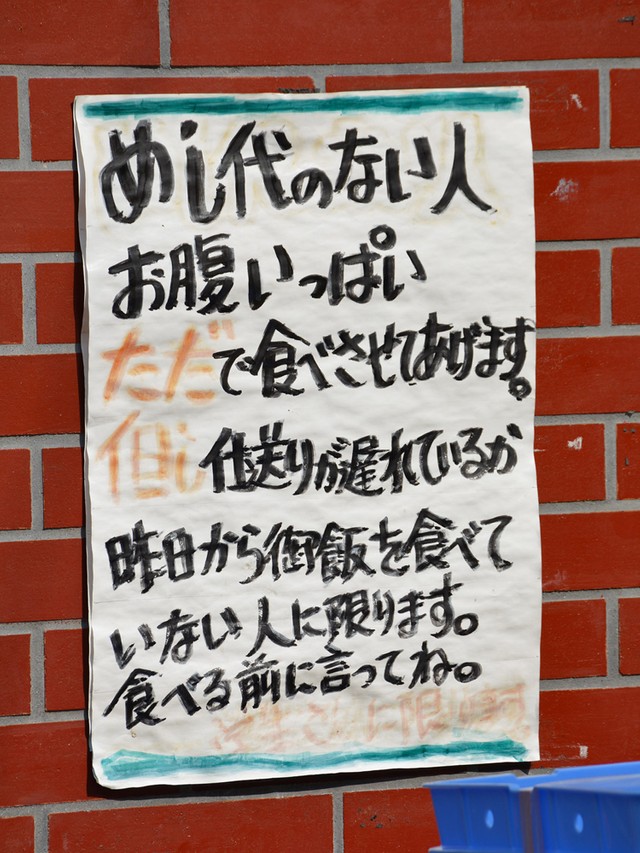 めし代のない人
お腹いっぱい
ただで食べさせてあげます。
但し仕送りが遅れているか
昨日から御飯を食べて
いない人に限ります。
食べる前に言ってね。
学生さんに限ります